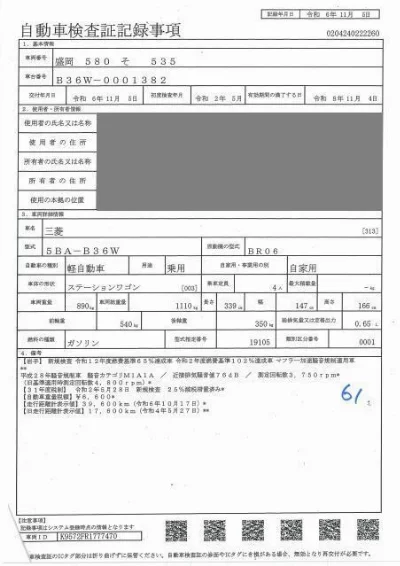 記録年月日 令和 6年11月 5日
自動車検査証記録事項
0204240222260
1. 基本情報
車両番号 盛岡 580 そ 535
車台番号 B36W-0001382
交付年月日 令和 6年11月 5日 初度検査年月 令和 2年 5月 有効期間の満了する日 令和 8年11月 4日
2. 使用者・所有者情報
使用者の氏名又は名称
使用者の住所
所有者の氏名又は名称
所有者の住所
使用の本拠の位置
3. 車両詳細情報
車名 三菱 [313]
型式 5BA-B36W 原動機の型式 BR06
自動車の種別 軽自動車 用途 乗用 自家用・事業用の別 自家用
車体の形状 ステーションワゴン [003] 乗車定員 4人 最大積載量 -kg
車両重量 890kg 車両総重量 1110kg 長さ 339cm 幅 147cm 高さ 166cm
前軸重 540kg 後軸重 350kg 総排気量又は定格出力 0.65 L
燃料の種類 ガソリン 型式指定番号 19105 類別区分番号 0001
4. 備考
【岩手】 新規検査 令和12年度燃費基準63%達成車 令和2年度燃費基準102%達成車 マフラー加速騒音規制適用車
**
平成28年騒音規制車 騒音カテゴリM1A1A / 近接排気騒音値76dB / 測定回転数3,750rpm*
【31年度税制】 令和2年5月28日 新規検査 25%減税措置済み*
【自動車重量税額】 ¥6,600*
【走行距離計表示値】 39,600km (令和6年10月17日)*
【旧走行距離計表示値】 17,800km (令和4年5月27日)**
61
【注意事項】
記録事項はシステム登録時点の情報となります
車両ID K9572FR1777470
車検査証のICタグ部分は折り曲げずに保管ください。自動車検査証の券面やICタグにき損がある場合、無効となり再交付が必要です。